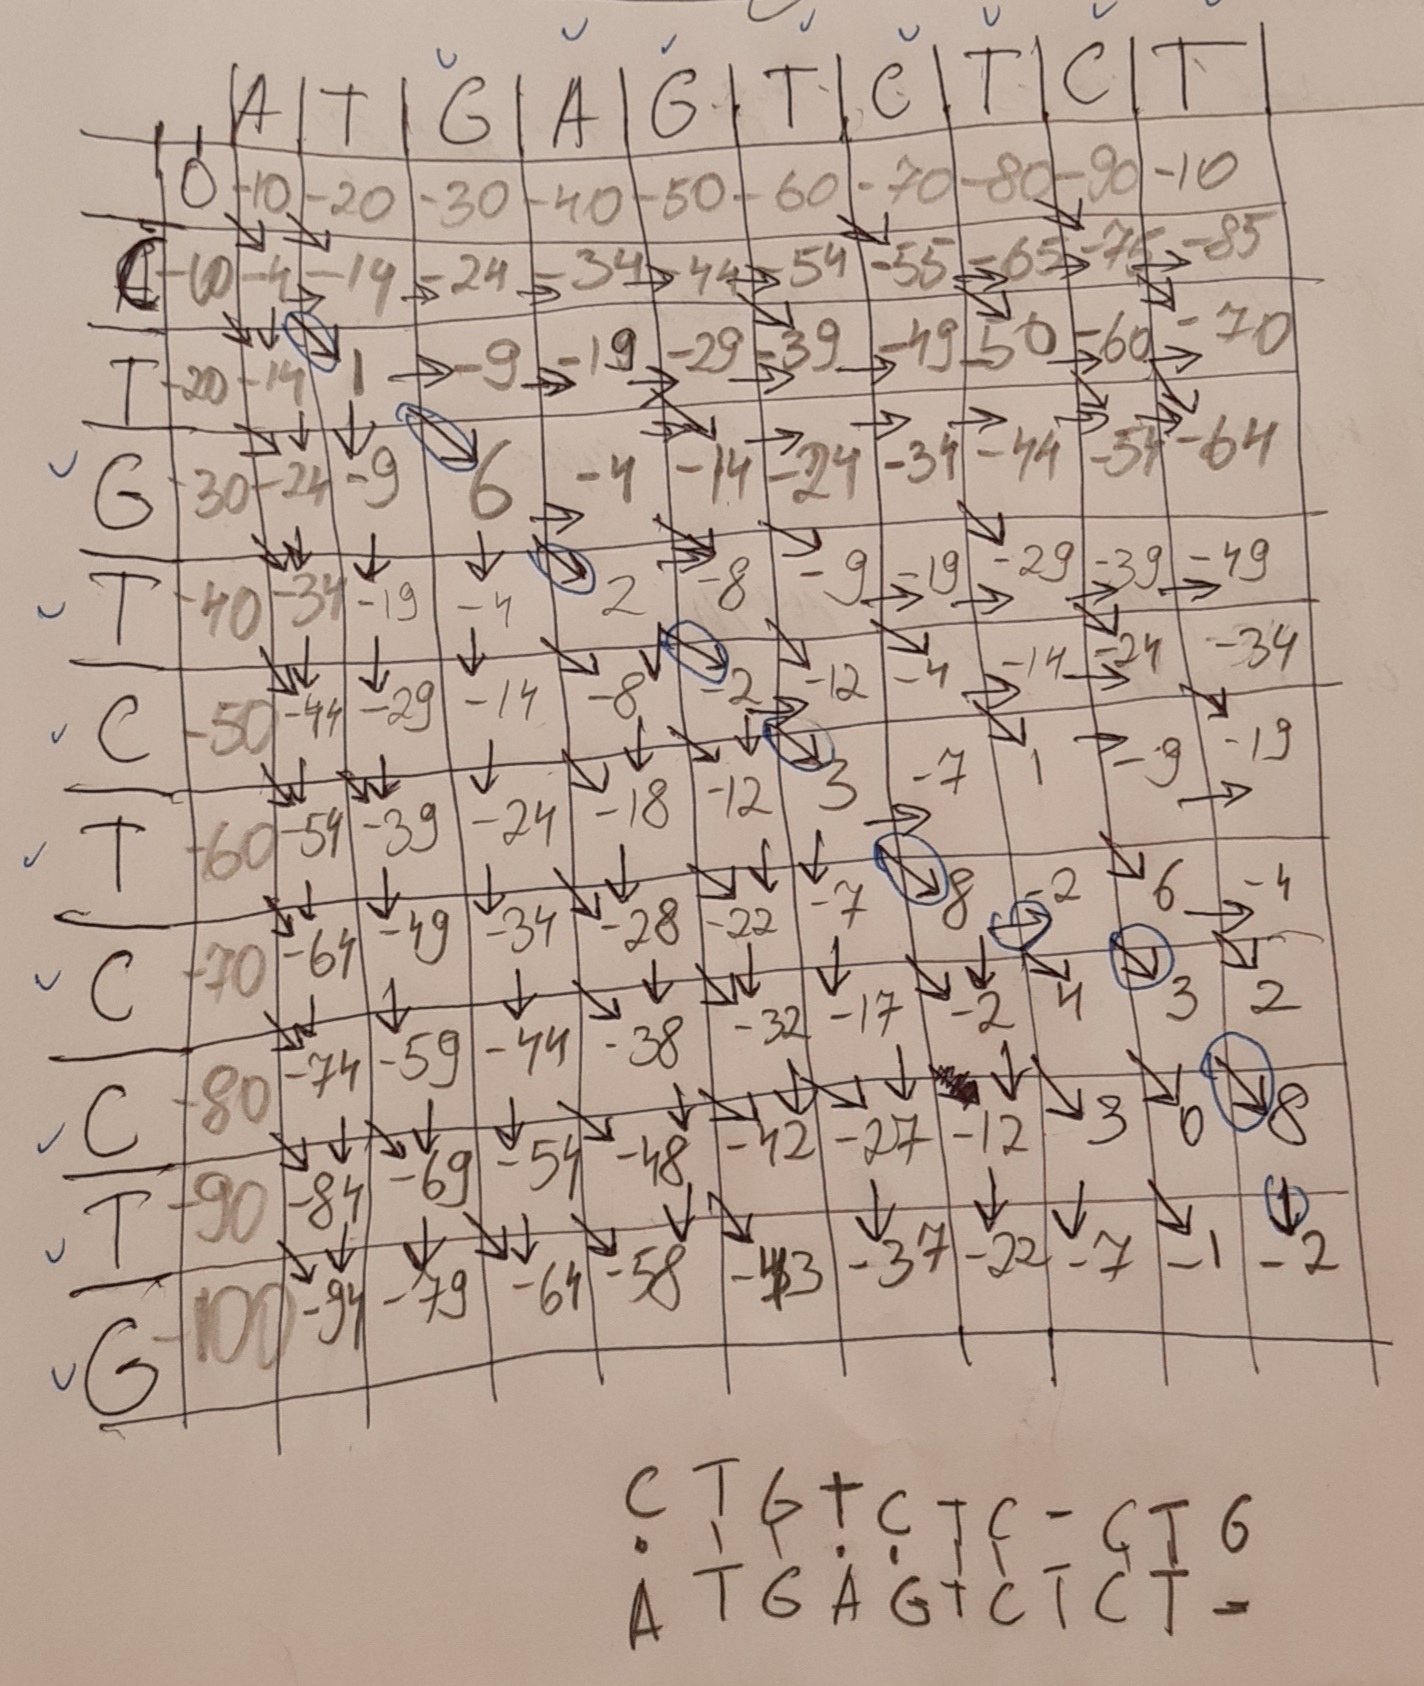 A T G A G T C T C T
0 -10 -20 -30 -40 -50 -60 -70 -80 -90 -10
C -10 -4 -14 -24 -34 -44 -54 -55 -65 -75 -85
T -20 -14 1 -9 -19 -29 -39 -49 -50 -60 -70
G -30 -24 -9 6 -4 -14 -24 -34 -44 -54 -64
T -40 -34 -19 -4 2 -8 -9 -19 -29 -39 -49
C -50 -44 -29 -14 -8 -2 -12 -4 -14 -24 -34
T -60 -54 -39 -24 -18 -12 3 -7 1 -9 -19
C -70 -64 -49 -34 -28 -22 -7 8 -2 6 -4
C -80 -74 -59 -44 -38 -32 -17 -2 4 3 2
T -90 -84 -69 -54 -48 -42 -27 -12 3 0 8
G -100 -94 -79 -64 -58 -43 -37 -22 -7 -1 -2
C T G T C T C - C T G
A T G A G T C T C T -